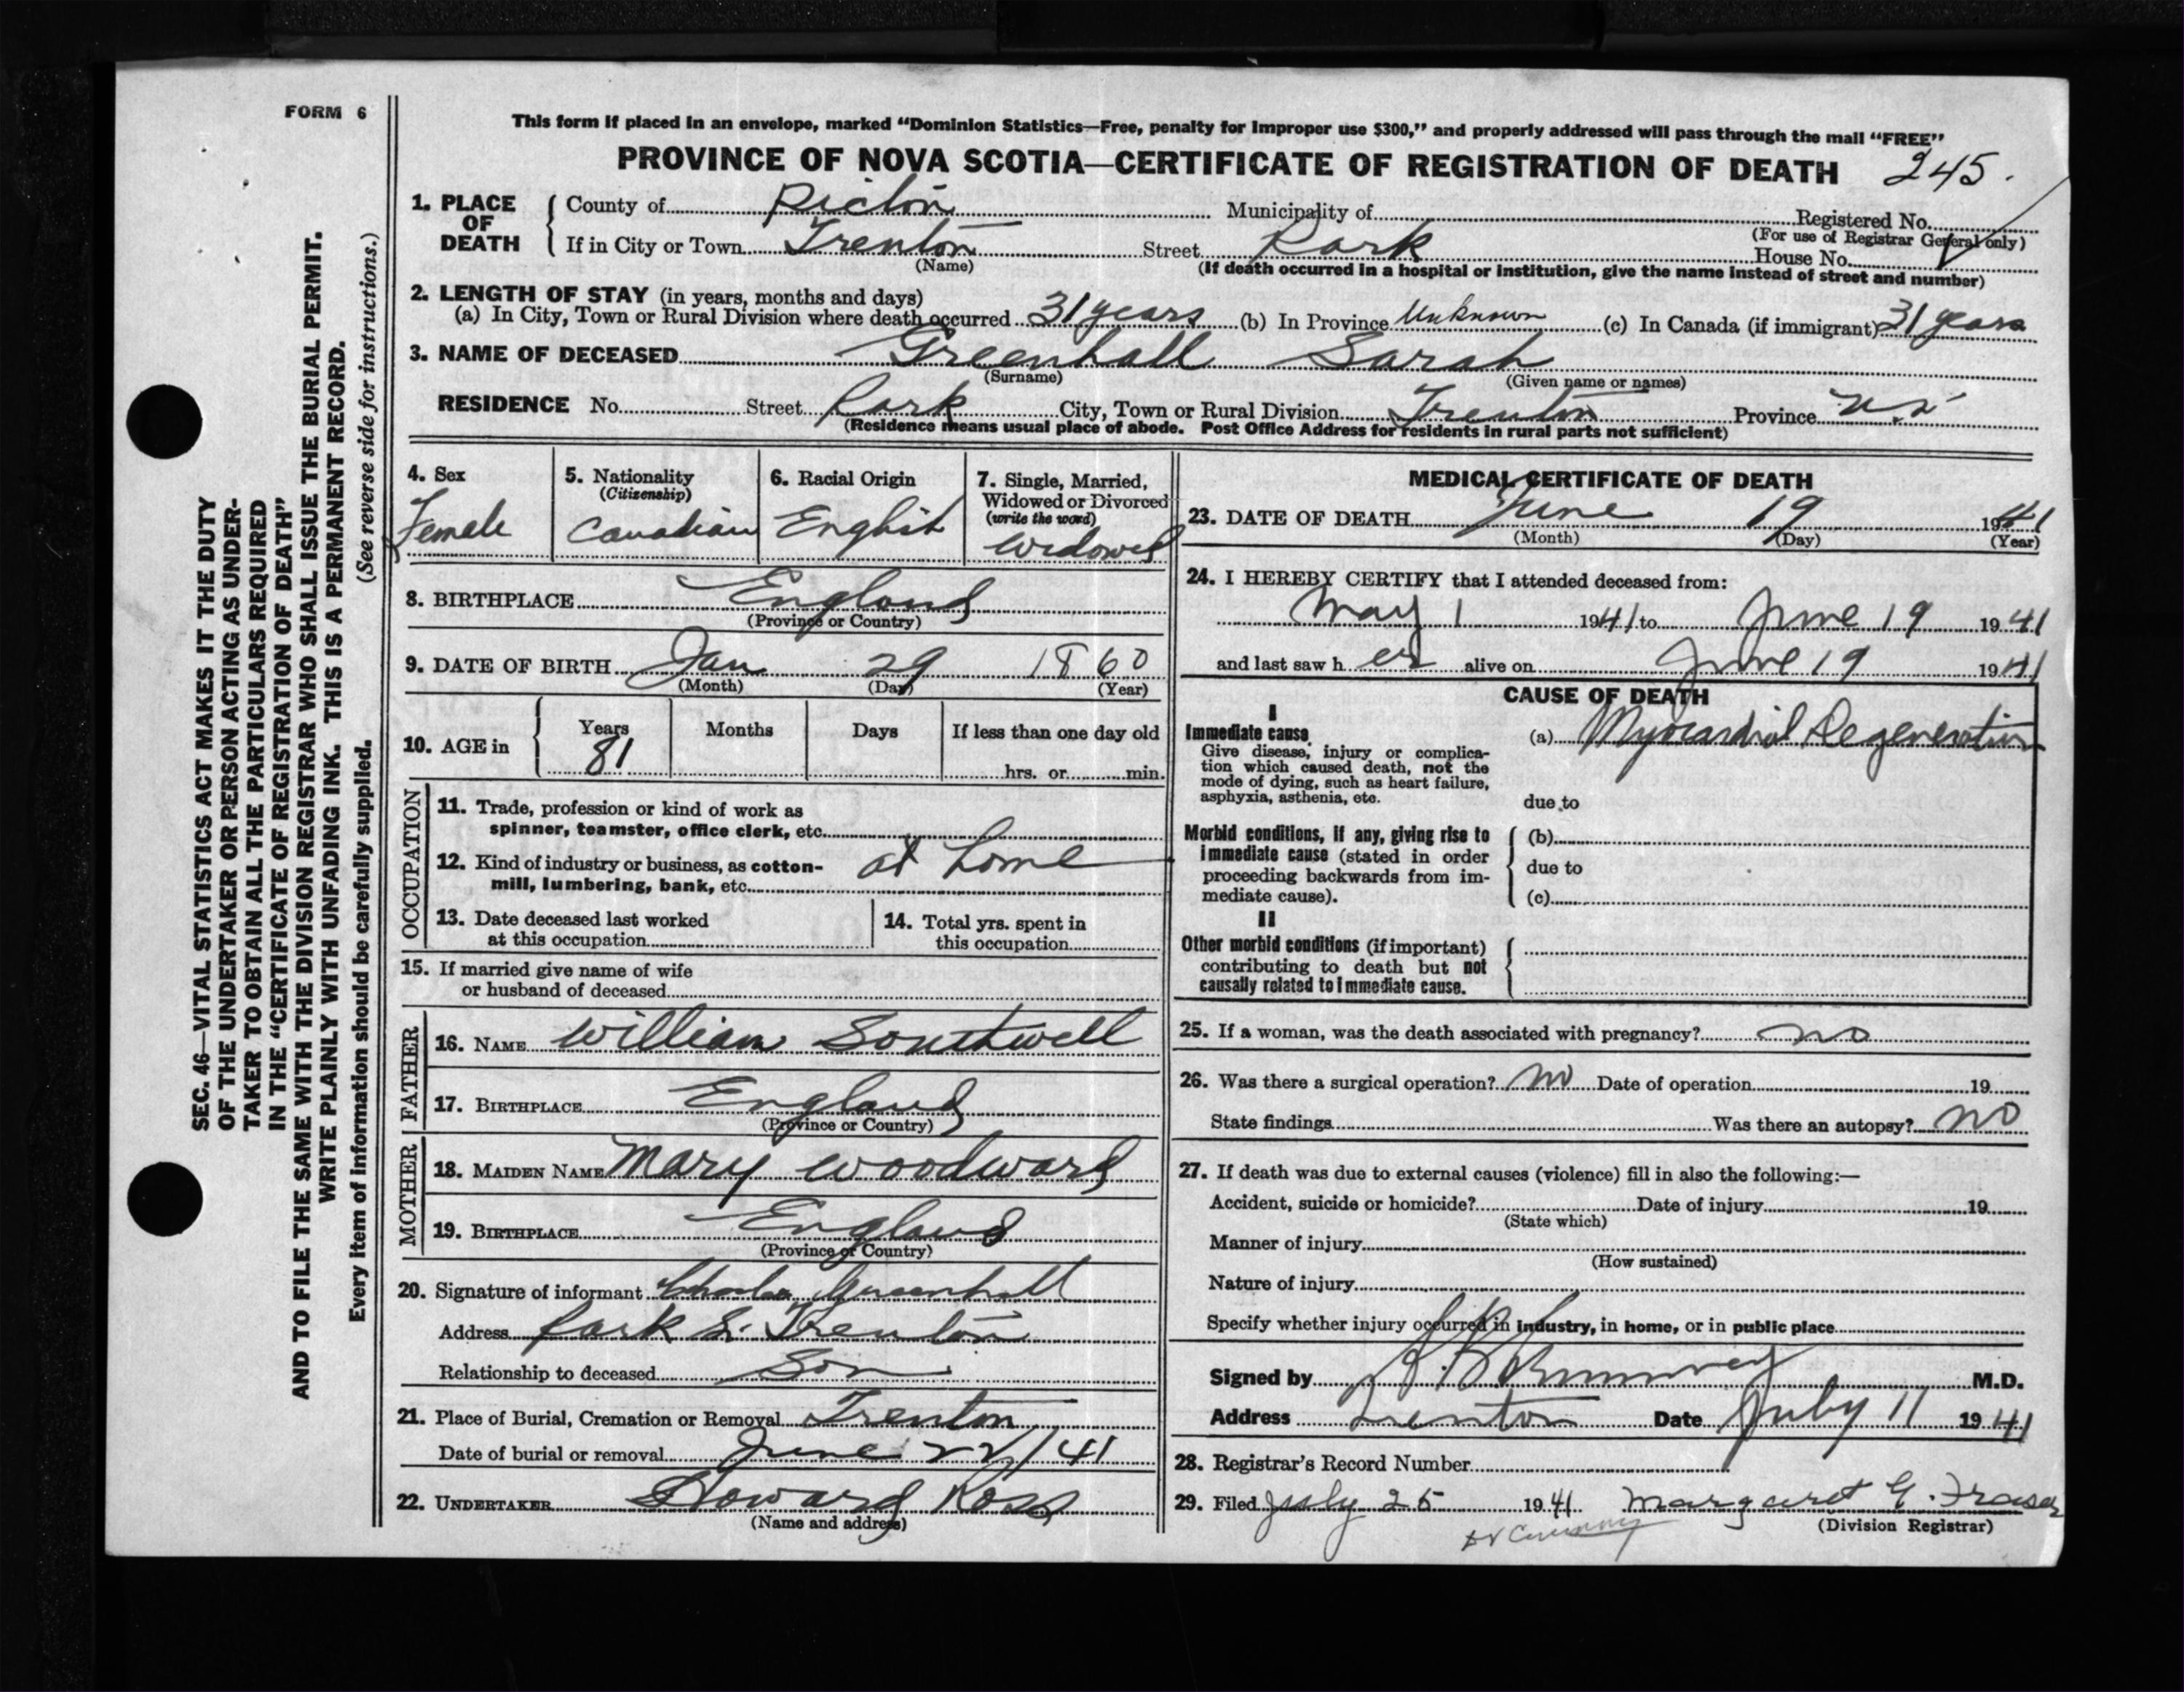 FORM 6
This form if placed in an envelope, marked “Dominion Statistics—Free, penalty for improper use $300,” and properly addressed will pass through the mail “FREE”
PROVINCE OF NOVA SCOTIA—CERTIFICATE OF REGISTRATION OF DEATH 245.
1. PLACE OF DEATH
County of Pictou Municipality of Registered No.
(For use of Registrar General only)
If in City or Town Trenton Street Park House No.
(Name) (If death occurred in a hospital or institution, give the name instead of street and number)
2. LENGTH OF STAY (in years, months and days)
(a) In City, Town or Rural Division where death occurred 31 years (b) In Province Unknown (c) In Canada (if immigrant) 31 years
3. NAME OF DECEASED Greenhall Sarah
(Surname) (Given name or names)
RESIDENCE No. Street Park City, Town or Rural Division Trenton Province N.S.
(Residence means usual place of abode. Post Office Address for residents in rural parts not sufficient)
4. Sex
Female
5. Nationality
(Citizenship)
Canadian
6. Racial Origin
English
7. Single, Married,
Widowed or Divorced
(write the word)
Widowed
8. BIRTHPLACE England
(Province or Country)
9. DATE OF BIRTH Jan 29 1860
(Month) (Day) (Year)
10. AGE in
Years Months Days If less than one day old
81
hrs. or min.
OCCUPATION
11. Trade, profession or kind of work as
spinner, teamster, office clerk, etc.
12. Kind of industry or business, as cotton- at home
mill, lumbering, bank, etc.
13. Date deceased last worked
at this occupation
14. Total yrs. spent in
this occupation
15. If married give name of wife
or husband of deceased
FATHER
16. NAME William Southwell
17. BIRTHPLACE England
(Province or Country)
MOTHER
18. MAIDEN NAME Mary Woodward
19. BIRTHPLACE England
(Province or Country)
20. Signature of informant Charles Greenhall
Address Park St. Trenton
Relationship to deceased Son
21. Place of Burial, Cremation or Removal Trenton
Date of burial or removal June 22/41
22. UNDERTAKER Howard Ross
(Name and address)
MEDICAL CERTIFICATE OF DEATH
23. DATE OF DEATH June 19 1941
(Month) (Day) (Year)
24. I HEREBY CERTIFY that I attended deceased from:
May 1 1941 to June 19 1941
and last saw her alive on June 19 1941
CAUSE OF DEATH
I
Immediate cause
Give disease, injury or complica-
tion which caused death, not the
mode of dying, such as heart failure,
asphyxia, asthenia, etc.
(a) Myocardial Degeneration
due to
Morbid conditions, if any, giving rise to
immediate cause (stated in order
proceeding backwards from im-
mediate cause).
(b)
due to
(c)
II
Other morbid conditions (if important)
contributing to death but not
causally related to immediate cause.
25. If a woman, was the death associated with pregnancy? no
26. Was there a surgical operation? no Date of operation 19
State findings Was there an autopsy? no
27. If death was due to external causes (violence) fill in also the following:—
Accident, suicide or homicide? Date of injury 19
(State which)
Manner of injury
(How sustained)
Nature of injury
Specify whether injury occurred in industry, in home, or in public place
Signed by M.D.
Address Trenton Date July 11 1941
28. Registrar's Record Number
29. Filed July 25 1941 Margaret G. Fraser
(Division Registrar)
SEC. 46—VITAL STATISTICS ACT MAKES IT THE DUTY
OF THE UNDERTAKER OR PERSON ACTING AS UNDER-
TAKER TO OBTAIN ALL THE PARTICULARS REQUIRED
IN THE “CERTIFICATE OF REGISTRATION OF DEATH”
AND TO FILE THE SAME WITH THE DIVISION REGISTRAR WHO SHALL ISSUE THE BURIAL PERMIT.
WRITE PLAINLY WITH UNFADING INK. THIS IS A PERMANENT RECORD.
Every item of information should be carefully supplied. (See reverse side for instructions.)